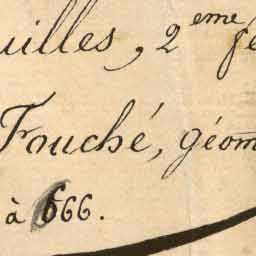 uilles, 2eme fe
Fouché, géom
à 666.